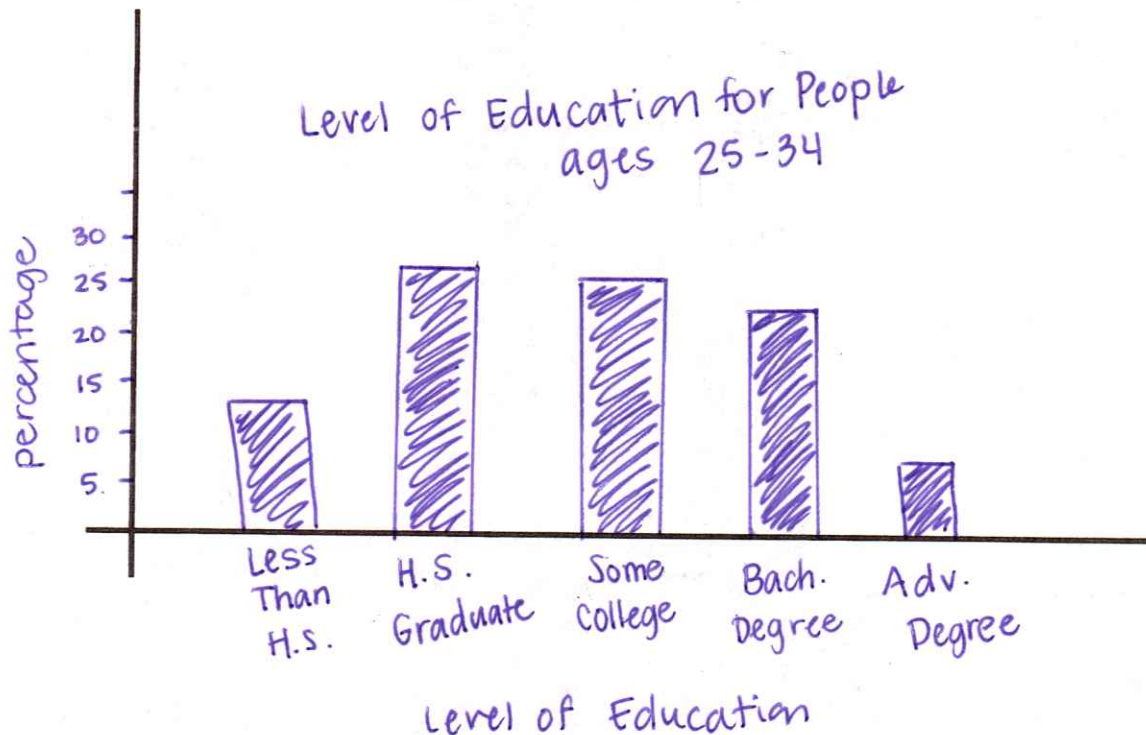 Level of Education for People
ages 25-34
percentage
30
25
20
15
10
5.
Less
Than
H.S.
H.S.
Graduate
Some
College
Bach.
Degree
Adv.
Degree
Level of Education